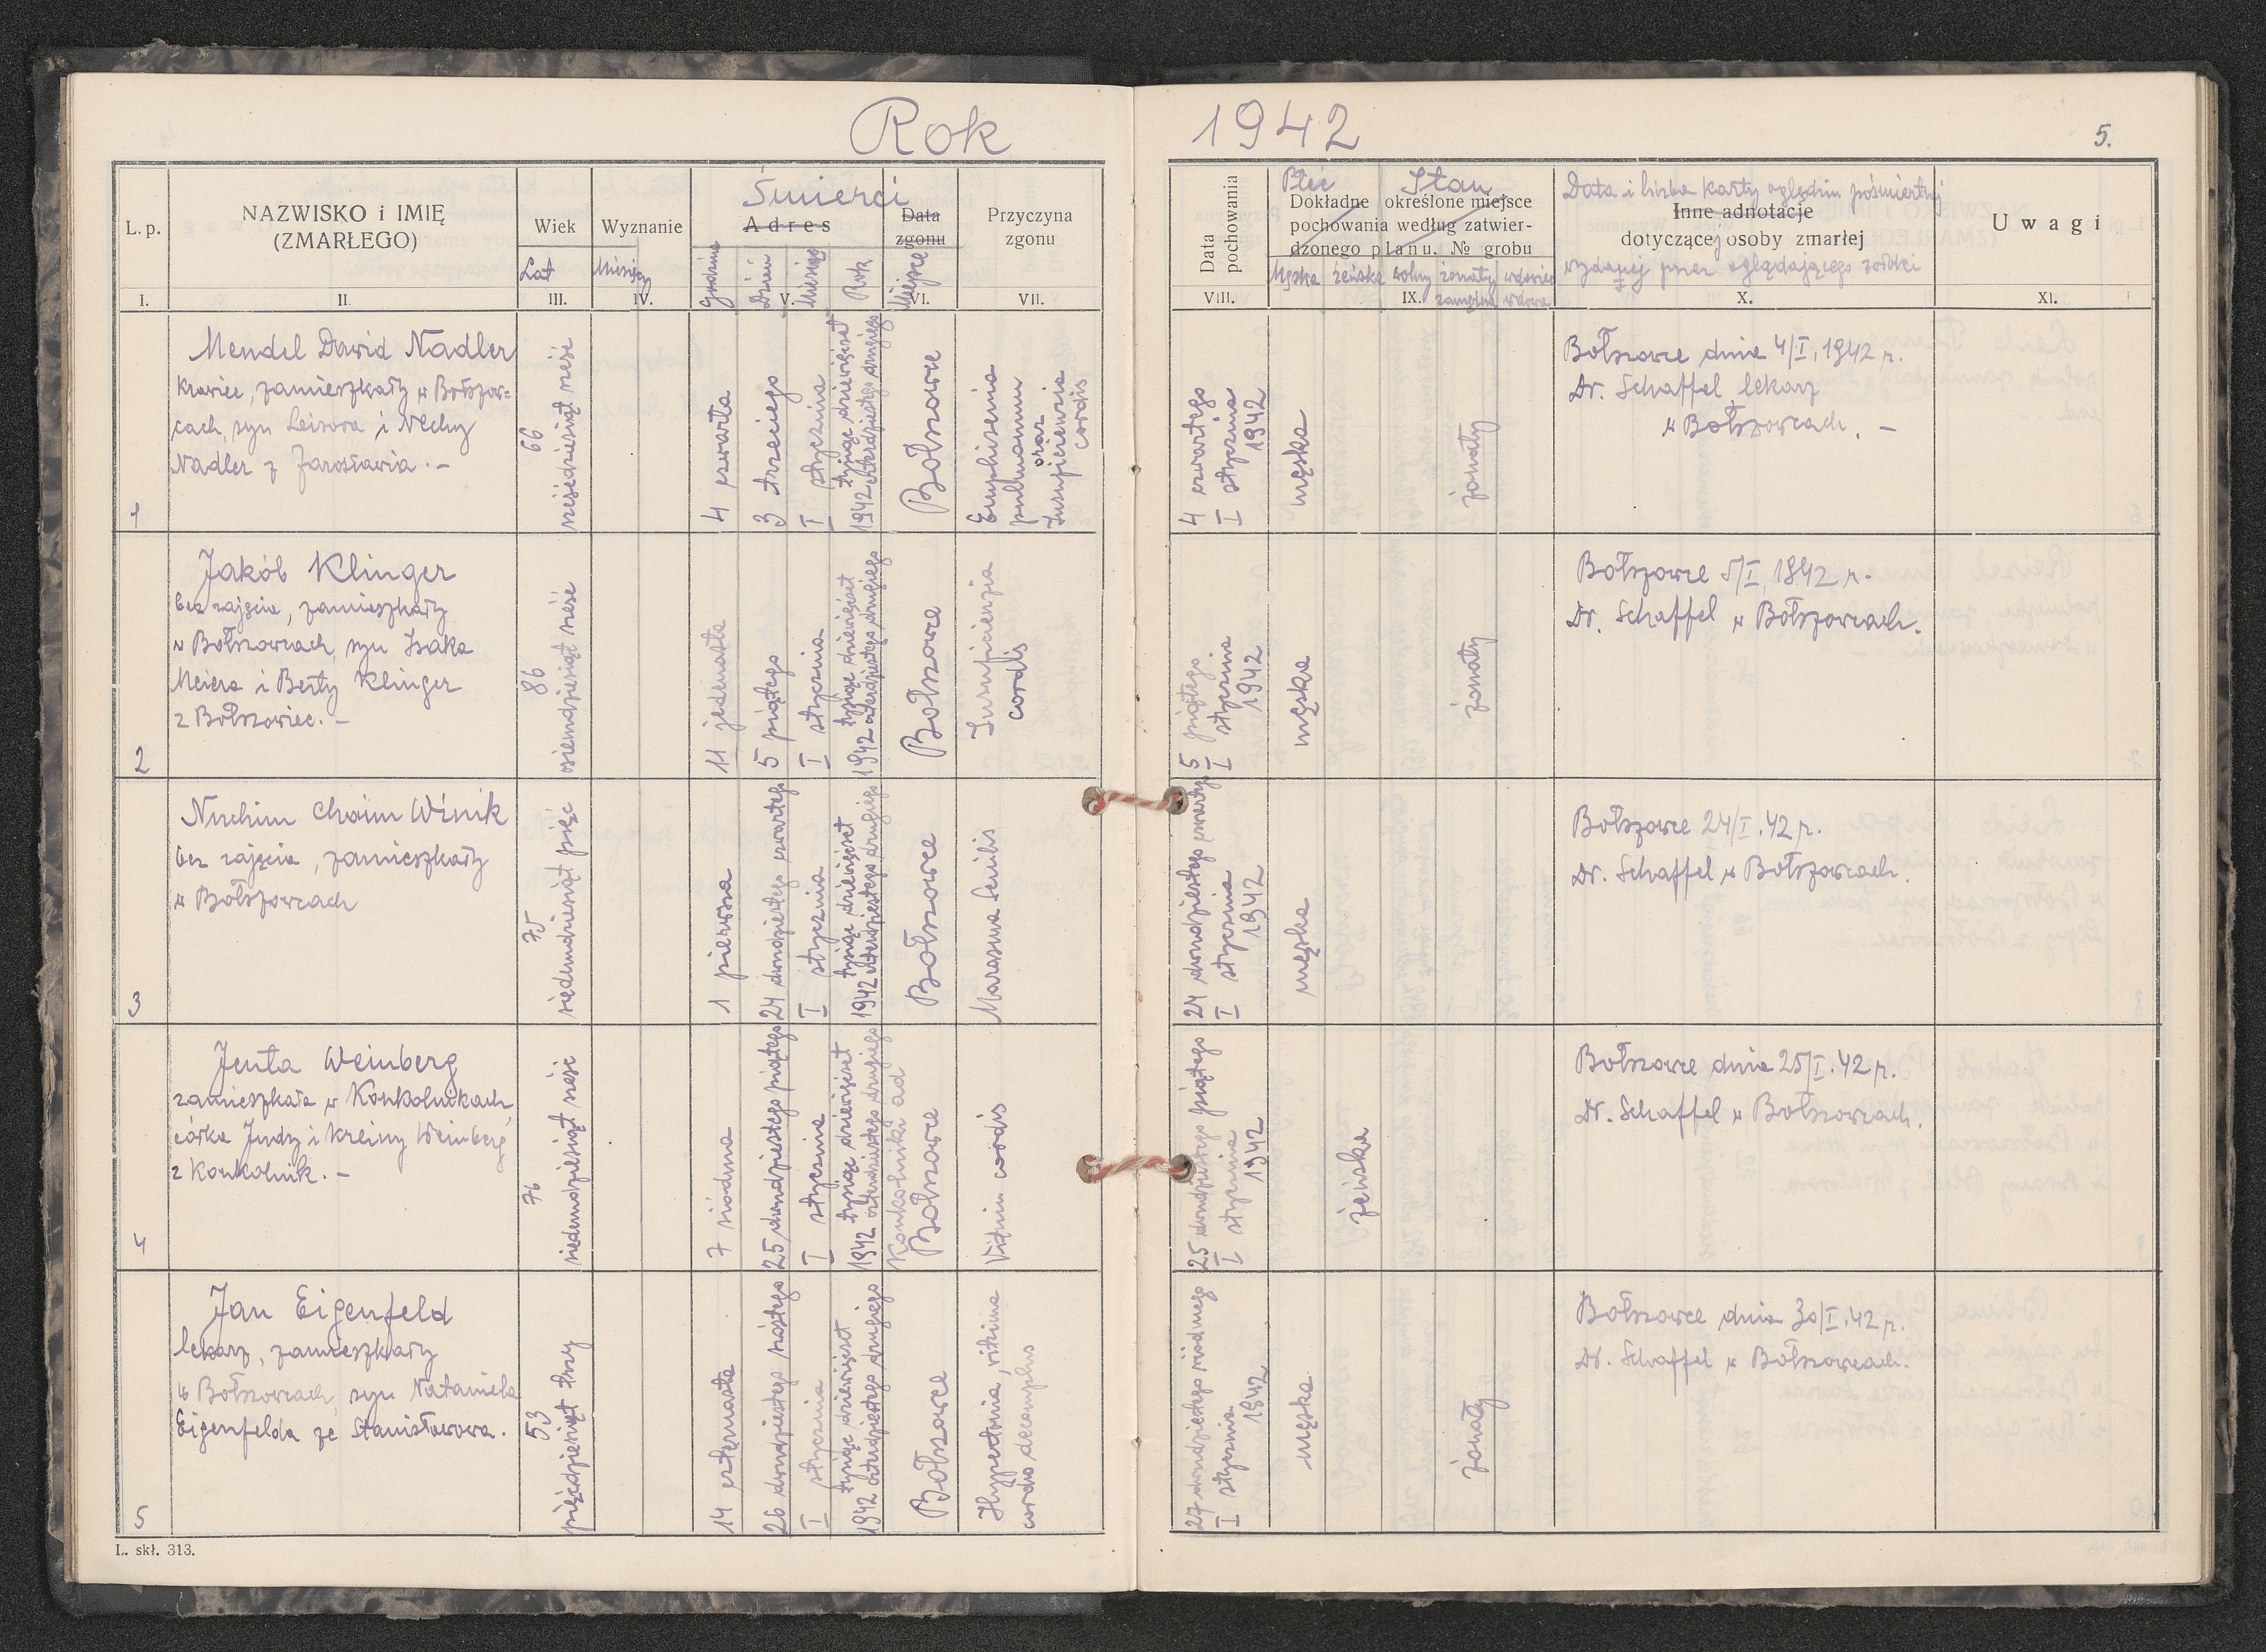 Rok 1942
5.
L. p.
NAZWISKO i IMIĘ
(ZMARŁEGO)
Wiek
Lat
Wyznanie
Miesięcy
Śmierci
Adres
Godzina
Dzień
Miesiąc
Rok
Data
zgonu
Miejsce
Przyczyna
zgonu
Data
pochowania
Płeć Stan
Dokładne określone miejsce
pochowania według zatwier-
dzonego planu. № grobu
Męska żeńska wolny żonaty wdowiec
zamężna wdowa
Data i liczba karty oględzin pośmiertnej
Inne adnotacje
dotyczącej osoby zmarłej
wydanej przez oglądającego zwłoki
Uwagi
I. II. III. IV. V. VI. VII. VIII. IX. X. XI.
1
Mendel Dawid Nadler
krawiec, zamieszkały w Bołszow=
cach, syn Leizora i Nechy
Nadler z Jarosławia. —
66
sześćdziesiąt sześć
4 czwarta
3 trzeciego
I stycznia
tysiąc dziewięćset
1942 czterdziestego drugiego
Bołszowce
Emphisemia
pulmonum
oraz
Insuficienzia
cordis
4 czwartego
I stycznia
1942
męska
żonaty
Bołszowce dnia 4/I, 1942 r.
Dr. Schaffel, lekarz
w Bołszowcach. —
2
Jakób Klinger
bez zajęcia, zamieszkały
w Bołszowcach, syn Isaka
Meiera i Berty Klinger
z Bołszowiec. —
86
osiemdziesiąt sześć
11 jedenasta
5 piątego
I stycznia
tysiąc dziewięćset
1942 czterdziestego drugiego
Bołszowce
Insuficienzia
cordis
5 piątego
I stycznia
1942
męska
żonaty
Bołszowce 5/I 1942 r.
Dr. Schaffel w Bołszowcach.
3
Nuchim Chaim Winik
bez zajęcia, zamieszkały
w Bołszowcach
75
siedemdziesiąt pięć
1 pierwsza
24 dwudziestego czwartego
I stycznia
tysiąc dziewięćset
1942 czterdziestego drugiego
Bołszowce
Marasmus Senilis
24 dwudziestego czwartego
I stycznia
1942
męska
Bołszowce 24/I. 42 r.
Dr. Schaffel w Bołszowcach.
4
Jenta Weinberg
zamieszkała w Konkolnikach,
córka Judy i Kreiny Weinberg
z Konkolnik. —
76
siedemdziesiąt sześć
7 siódma
25 dwudziestego piątego
I stycznia
tysiąc dziewięćset
1942 czterdziestego drugiego
Konkolniki ad
Bołszowce
Vitium cordis
25 dwudziestego piątego
I stycznia
1942
żeńska
Bołszowce dnia 25/I. 42 r.
Dr. Schaffel w Bołszowcach.
5
Jan Eigenfeld
lekarz, zamieszkały
w Bołszowcach, syn Nataniela
Eigenfelda ze Stanisławowa.
53
pięćdziesiąt trzy
14 czternasta
26 dwudziestego szóstego
I stycznia
tysiąc dziewięćset
1942 czterdziestego drugiego
Bołszowce
27 dwudziestego siódmego
I stycznia
1942
męska
żonaty
Bołszowce dnia 30/I. 42 r.
Dr. Schaffel w Bołszowcach.
L. skł. 313.